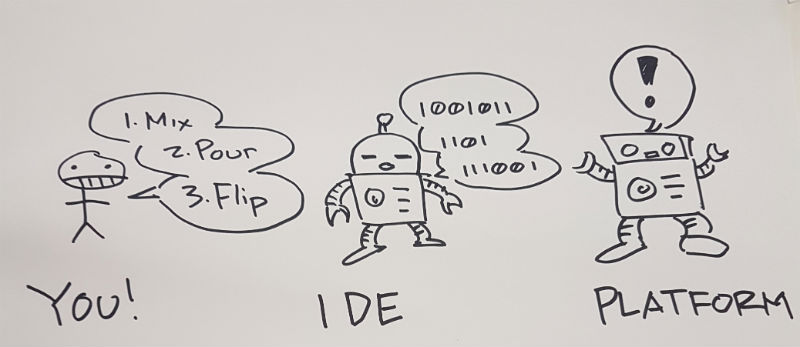 1. Mix
2. Pour
3. Flip
1001011
1101
111001
!
YOU!
IDE
PLATFORM